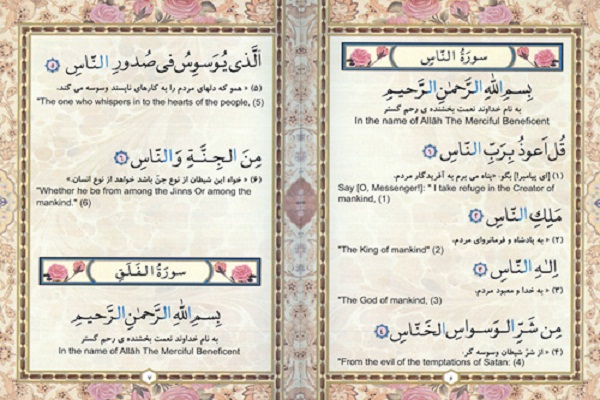 سورة الناس
بِسمِ اللهِ الرَّحمٰنِ الرَّحيمِ
به نام خداوند نعمت بخشنده ی رحم گستر
In the name of Allâh The Merciful Beneficent
قُل اَعوذُ بِرَبِّ النّاسِ ﴿١﴾
(۱) [ای پیامبر!] بگو: «پناه می برم به آفریدگار مردم.
Say [O, Messenger!]: " I take refuge in the Creator of
mankind, (1)
مَلِكِ النّاسِ ﴿٢﴾
(۲) « به پادشاه و فرمانروای مردم.
"The King of mankind" (2)
اِلٰهِ النّاسِ ﴿٣﴾
(۳) « به خدا و معبود مردم.
"The God of mankind, (3)
مِن شَرِّ الوَسواسِ الخَنّاسِ ﴿٤﴾
(۴) « از شرّ شیطان وسوسه گر.
"From the evil of the temptations of Satan: (4)
اَلَّذي يُوَسوِسُ في صُدورِ النّاسِ ﴿٥﴾
(۵) « همو که دلهای مردم را به کارهای ناپسند وسوسه می کند.
"The one who whispers in to the hearts of the people, (5)
مِنَ الجِنَّةِ وَالنّاسِ ﴿٦﴾
(۶) « خواه این شیطان از نوع جنّ باشد خواهد از نوع انسان.»
"Whether he be from among the Jinns Or among the
mankind." (6)
سورة الفلق
بِسمِ اللهِ الرَّحمٰنِ الرَّحيمِ
به نام خداوند نعمت بخشنده ی رحم گستر
In the name of Allâh The Merciful Beneficent
۷